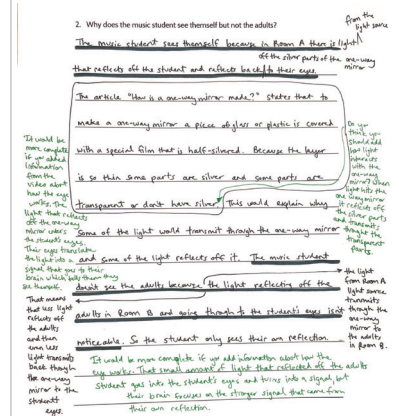 2. Why does the music student see themself but not the adults?
from the light source
The music student sees themself because in Room A there is light
off the silver parts of the one-way mirror
that reflects off the student and reflects back to their eyes.
The article "How is a one-way mirror made?" states that to
make a one-way mirror a piece of glass or plastic is covered
with a special film that is half-silvered. Because the layer
is so thin some parts are silver and some parts are
transparent or don't have silver. This would explain why
some of the light would transmit through the one-way mirror
and some of the light reflects off it. The music student
doesn't see the adults because the light reflecting off the
adults in Room B and going through to the student's eyes isn't
noticeable. So the student only sees their own reflection.
It would be more complete if you added information from the video about how the eye works. The light that reflects off the one-way mirror enters the student's eyes. Their eyes translate the light into a signal that goes to their brain which tells them they see themself.
Do you think you should add how light interacts with the one-way mirror? When light hits the one way mirror it reflects off the silver parts and transmits through the transparent parts.
the light from Room A light source transmits through the one-way mirror to the adults in Room B.
That means that less light reflects off the adults and then even less light transmits back through the one-way mirror to the student's eyes.
It would be more complete if you add information about how the
eye works. That small amount of light that reflected off the adults
goes into the student's eyes and turns into a signal, but
their brain focuses on the stronger signal that came from
their own reflection.